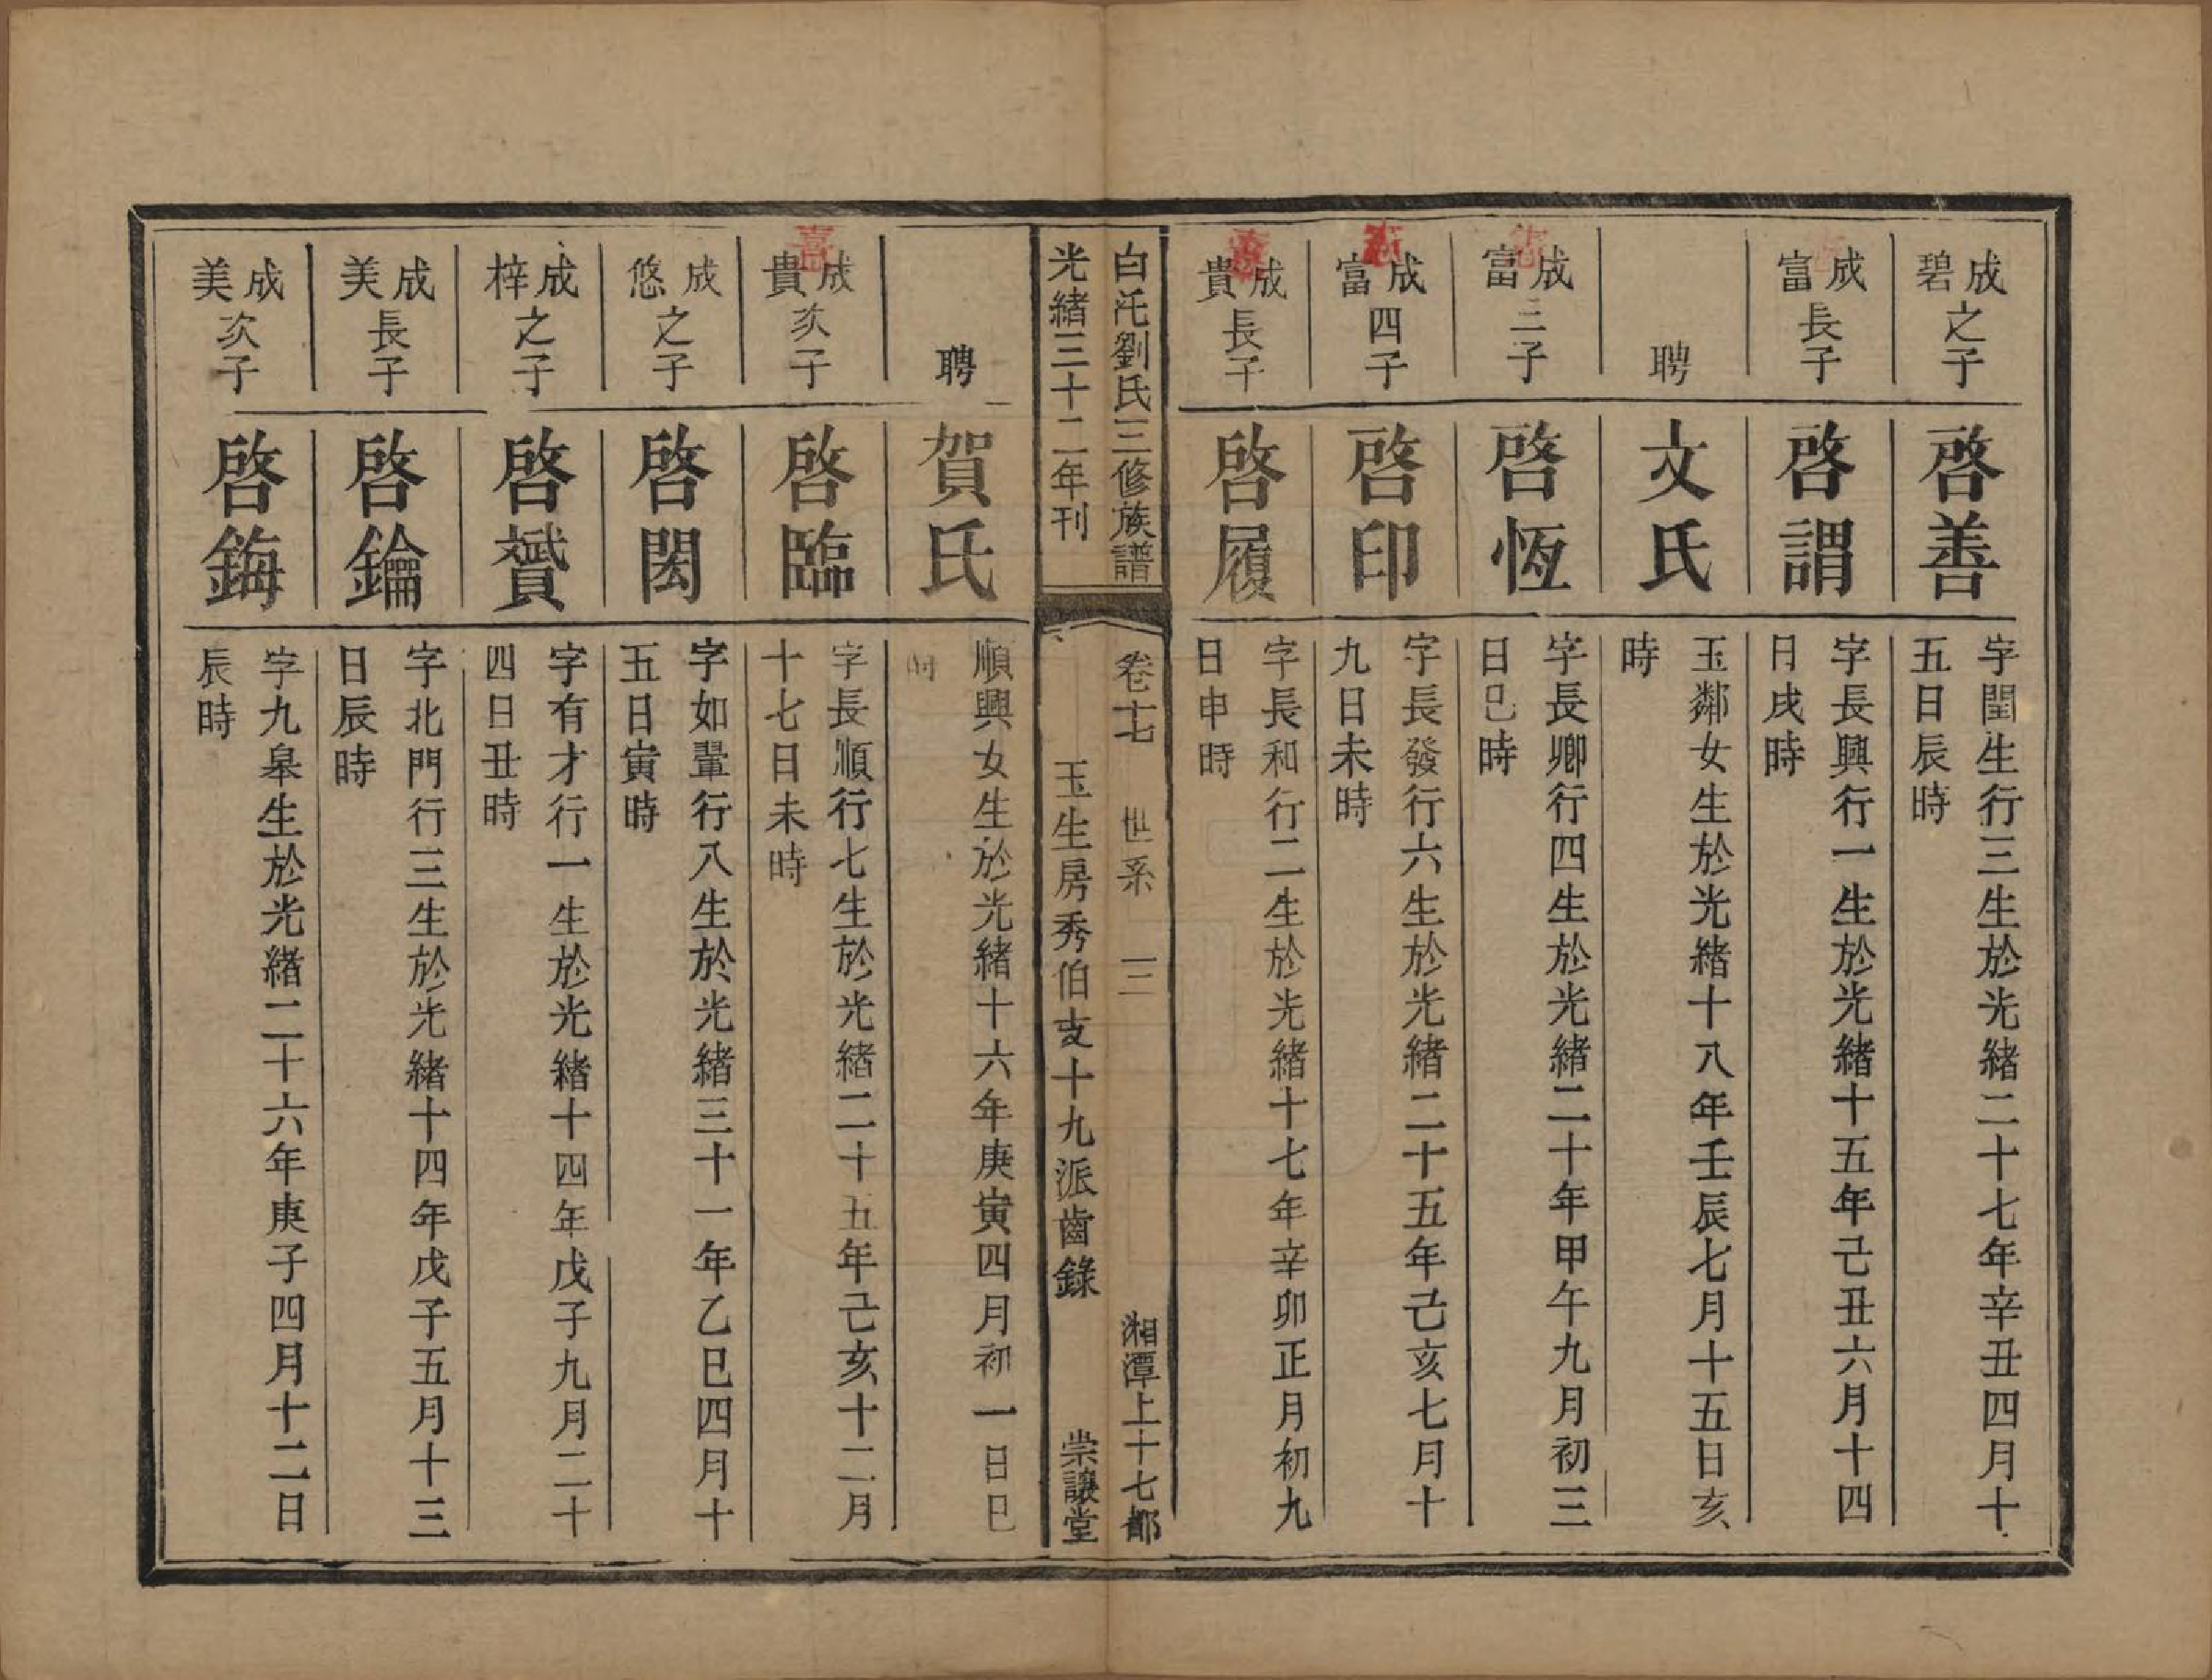 成碧之子
啓善
字閏生行三生於光緒二十七年辛丑四月十
五日辰時
成富長子
啓謂
字長興行一生於光緒十五年己丑六月十四
日戌時
聘
文氏
玉鄰女生於光緒十八年壬辰七月十五日亥
時
成富三子
啓恆
字長卿行四生於光緒二十年甲午九月初三
日巳時
成富四子
啓印
字長發行六生於光緒二十五年己亥七月十
九日未時
成貴長子
啓履
字長和行二生於光緒十七年辛卯正月初九
日申時
白沱劉氏三修族譜
卷十七 世系 三
湘潭上十七都
光緒三十二年刊
玉生房秀伯支十九派齒錄
崇讓堂
聘
賀氏
順興女生於光緒十六年庚寅四月初一日巳
時
成貴次子
啓臨
字長順行七生於光緒二十五年己亥十二月
十七日未時
成悠之子
啓閎
字如翬行八生於光緒三十一年乙巳四月十
五日寅時
成梓之子
啓贇
字有才行一生於光緒十四年戊子九月二十
四日丑時
成美長子
啓鑰
字北門行三生於光緒十四年戊子五月十三
日辰時
成美次子
啓鋂
字九皋生於光緒二十六年庚子四月十二日
辰時